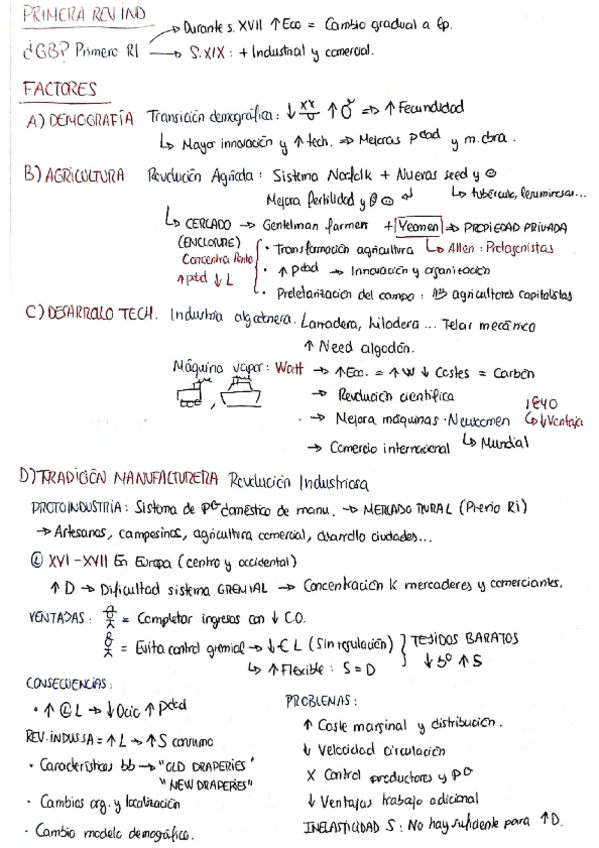 PRIMERA REV IND
→ Durante s. XVII ↑ Eco = Cambio gradual a lp.
¿GB? Primero RI → S. XIX: + Industrial y comercial.
FACTORES
A) DEMOGRAFÍA Transición demográfica: ↓ ↑ => ↑ Fecundidad
↳ Mayor innovación y ↑ tech. => Mejoras pdad y m. obra.
B) AGRICULTURA Revolución Agrícola: Sistema Norfolk + Nuevas seed y
Mejora fertilidad y ↳ tubérculo, leguminosas...
↳ CERCADO → Gentelman farmers + Yeomen => PROPIEDAD PRIVADA
(ENCLOSURE)
Concentra
↑ pdad ↓ L
• Transformación agricultura ↳ Allen: Protagonistas
• ↑ pdad → Innovación y organización
• Proletarización del campo: agricultores capitalistas
C) DESARROLLO TECH. Industria algodonera. Lanzadera, hiladora ... Telar mecánico
↑ Need algodón.
Máquina vapor: Watt → ↑ Eco. = ↑ W ↓ Costes = Carbón
→ Revolución científica
→ Mejora máquinas · Newcomen
1840
↳ ↓ Ventaja
→ Comercio internacional ↳ Mundial
D) TRADICIÓN MANUFACTURERA Revolución Industriosa
PROTOINDUSTRIA: Sistema de Pº doméstico de manu. → MERCADO RURAL (Previo RI)
→ Artesanos, campesinos, agricultura comercial, dsarrollo ciudades...
XVI - XVII En Europa (centro y occidental)
↑ D → Dificultad sistema GREMIAL → Concentración K mercaderes y comerciantes.
VENTAJAS: = Completar ingresos con ↓ C.O.
= Evita control gremial → ↓ € L (Sin regulación) } TEJIDOS BARATOS
↳ ↑ Flexible: S = D
↓ ↑ S
CONSECUENCIAS:
• ↑ L → ↓ Ocio ↑ pdad
REV. INDUSSA = ↑ L → ↑ S consumo
• Características bb → "OLD DRAPERIES"
"NEW DRAPERIES"
• Cambios org. y localización
· Cambio modelo demográfico.
PROBLEMAS:
↑ Coste marginal y distribución.
↓ Velocidad circulación
X Control productores y Pº
↓ Ventajas trabajo adicional
INELASTICIDAD S: No hay suficiente para ↑ D.